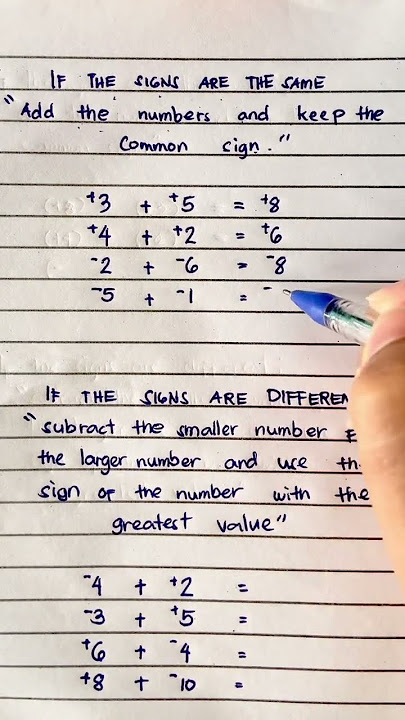 IF THE SIGNS ARE THE SAME
"Add the numbers and keep the
common sign."
+3 + +5 = +8
+4 + +2 = +6
-2 + -6 = -8
-5 + -1 = -
IF THE SIGNS ARE DIFFEREN
"subract the smaller number
the larger number and use th
sign of the number with the
greatest value"
-4 + +2 =
-3 + +5 =
+6 + -4 =
+8 + -10 =